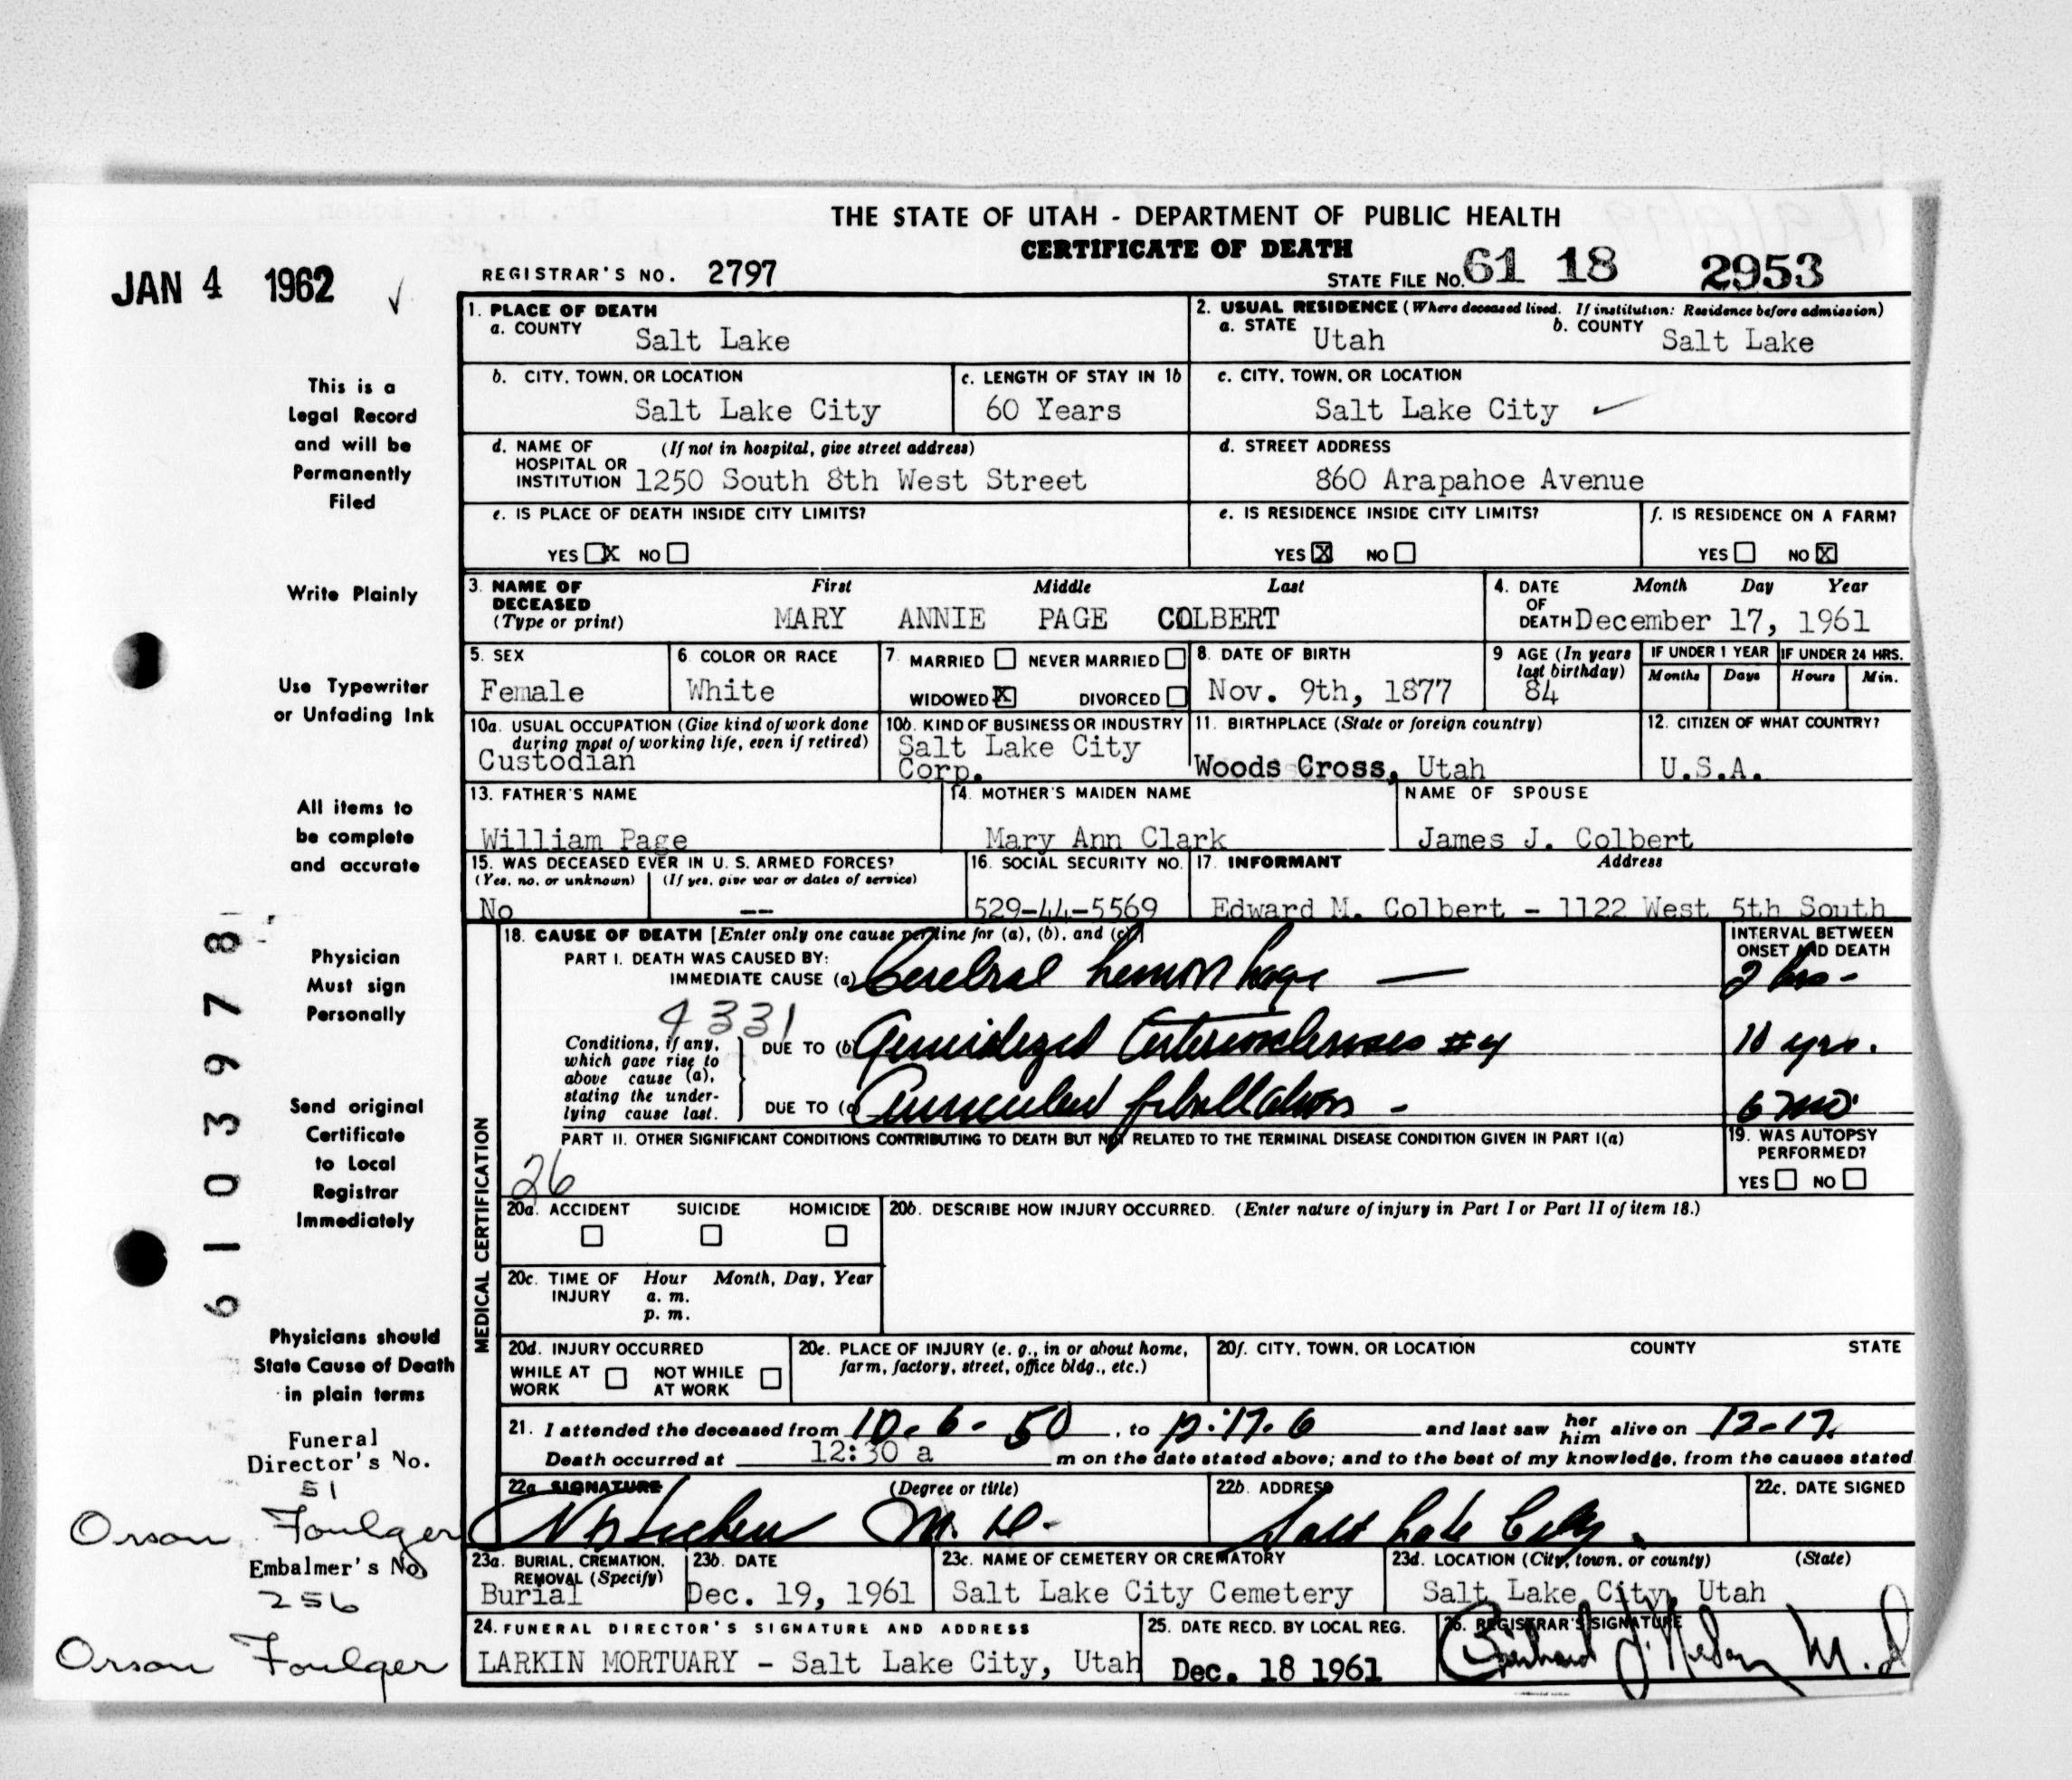 THE STATE OF UTAH - DEPARTMENT OF PUBLIC HEALTH
CERTIFICATE OF DEATH
JAN 4 1962 ✓
REGISTRAR'S NO. 2797
STATE FILE NO. 61 18 2953
This is a
Legal Record
and will be
Permanently
Filed
Write Plainly
Use Typewriter
or Unfading Ink
All items to
be complete
and accurate
Physician
Must sign
Personally
Send original
Certificate
to Local
Registrar
Immediately
Physicians should
State Cause of Death
in plain terms
6103978
Funeral
Director's No.
51
Orson Foulger
Embalmer's No
256
Orson Foulger
1. PLACE OF DEATH
a. COUNTY Salt Lake
2. USUAL RESIDENCE (Where deceased lived. If institution: Residence before admission)
a. STATE Utah b. COUNTY Salt Lake
b. CITY, TOWN, OR LOCATION
Salt Lake City
c. LENGTH OF STAY IN 1b
60 Years
c. CITY, TOWN, OR LOCATION
Salt Lake City ✓
d. NAME OF (If not in hospital, give street address)
HOSPITAL OR
INSTITUTION 1250 South 8th West Street
d. STREET ADDRESS
860 Arapahoe Avenue
e. IS PLACE OF DEATH INSIDE CITY LIMITS?
YES X NO
e. IS RESIDENCE INSIDE CITY LIMITS?
YES X NO
f. IS RESIDENCE ON A FARM?
YES NO X
3. NAME OF
DECEASED
(Type or print)
First Middle Last
MARY ANNIE PAGE COLBERT
4. DATE Month Day Year
OF
DEATH December 17, 1961
5. SEX
Female
6 COLOR OR RACE
White
7. MARRIED NEVER MARRIED
WIDOWED X DIVORCED
8. DATE OF BIRTH
Nov. 9th, 1877
9 AGE (In years
last birthday)
84
IF UNDER 1 YEAR IF UNDER 24 HRS.
Months Days Hours Min.
10a. USUAL OCCUPATION (Give kind of work done
during most of working life, even if retired)
Custodian
10b. KIND OF BUSINESS OR INDUSTRY
Salt Lake City
Corp.
11. BIRTHPLACE (State or foreign country)
Woods Cross, Utah
12. CITIZEN OF WHAT COUNTRY?
U.S.A.
13. FATHER'S NAME
William Page
14. MOTHER'S MAIDEN NAME
Mary Ann Clark
NAME OF SPOUSE
James J. Colbert
15. WAS DECEASED EVER IN U. S. ARMED FORCES?
(Yes, no, or unknown) (If yes, give war or dates of service)
No --
16. SOCIAL SECURITY NO.
529-44-5569
17. INFORMANT Address
Edward M. Colbert - 1122 West 5th South
MEDICAL CERTIFICATION
18. CAUSE OF DEATH [Enter only one cause per line for (a), (b), and (c)]
INTERVAL BETWEEN
ONSET AND DEATH
PART I. DEATH WAS CAUSED BY:
IMMEDIATE CAUSE (a) Cerebral hemorrhage — 2 hrs -
4331
Conditions, if any,
which gave rise to
above cause (a),
stating the under-
lying cause last.
DUE TO (b) Generalized Arteriosclerosis #4 10 yrs.
DUE TO (c) Auricular fibrillation - 6 mo.
PART II. OTHER SIGNIFICANT CONDITIONS CONTRIBUTING TO DEATH BUT NOT RELATED TO THE TERMINAL DISEASE CONDITION GIVEN IN PART I(a)
26
19. WAS AUTOPSY
PERFORMED?
YES NO
20a. ACCIDENT SUICIDE HOMICIDE
20b. DESCRIBE HOW INJURY OCCURRED. (Enter nature of injury in Part I or Part II of item 18.)
20c. TIME OF Hour Month, Day, Year
INJURY a. m.
p. m.
20d. INJURY OCCURRED
WHILE AT NOT WHILE
WORK AT WORK
20e. PLACE OF INJURY (e. g., in or about home,
farm, factory, street, office bldg., etc.)
20f. CITY, TOWN, OR LOCATION COUNTY STATE
21. I attended the deceased from 10-6-50, to 12-17-6 and last saw her him alive on 12-17.
Death occurred at 12:30 a m on the date stated above; and to the best of my knowledge, from the causes stated
22a SIGNATURE (Degree or title)
M. D.
22b. ADDRESS
Salt Lake City.
22c. DATE SIGNED
23a. BURIAL, CREMATION,
REMOVAL (Specify)
Burial
23b. DATE
Dec. 19, 1961
23c. NAME OF CEMETERY OR CREMATORY
Salt Lake City Cemetery
23d. LOCATION (City, town, or county) (State)
Salt Lake City, Utah
24. FUNERAL DIRECTOR'S SIGNATURE AND ADDRESS
LARKIN MORTUARY - Salt Lake City, Utah
25. DATE RECD. BY LOCAL REG.
Dec. 18 1961
26. REGISTRAR'S SIGNATURE
M.D